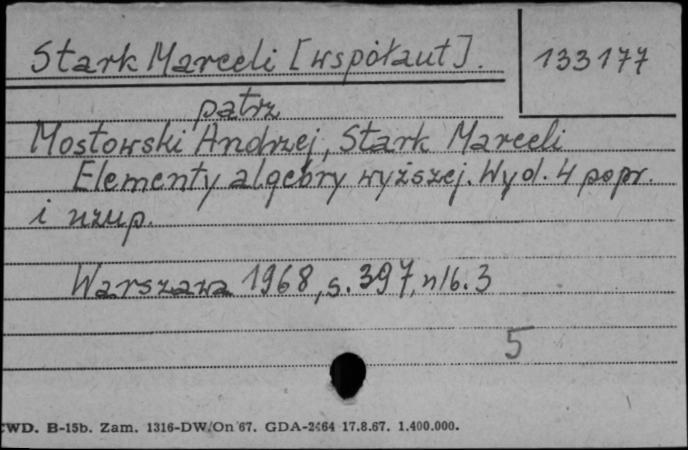 Stark Marceli [współaut].
133177
patrz
Mostowski Andrzej, Stark Marceli
Elementy algebry wyższej. Wyd. 4 popr.
i uzup.
Warszawa 1968, s. 397, nlb. 3
5
CWD. B-15b. Zam. 1316-DW/On 67. GDA-2464 17.8.67. 1.400.000.